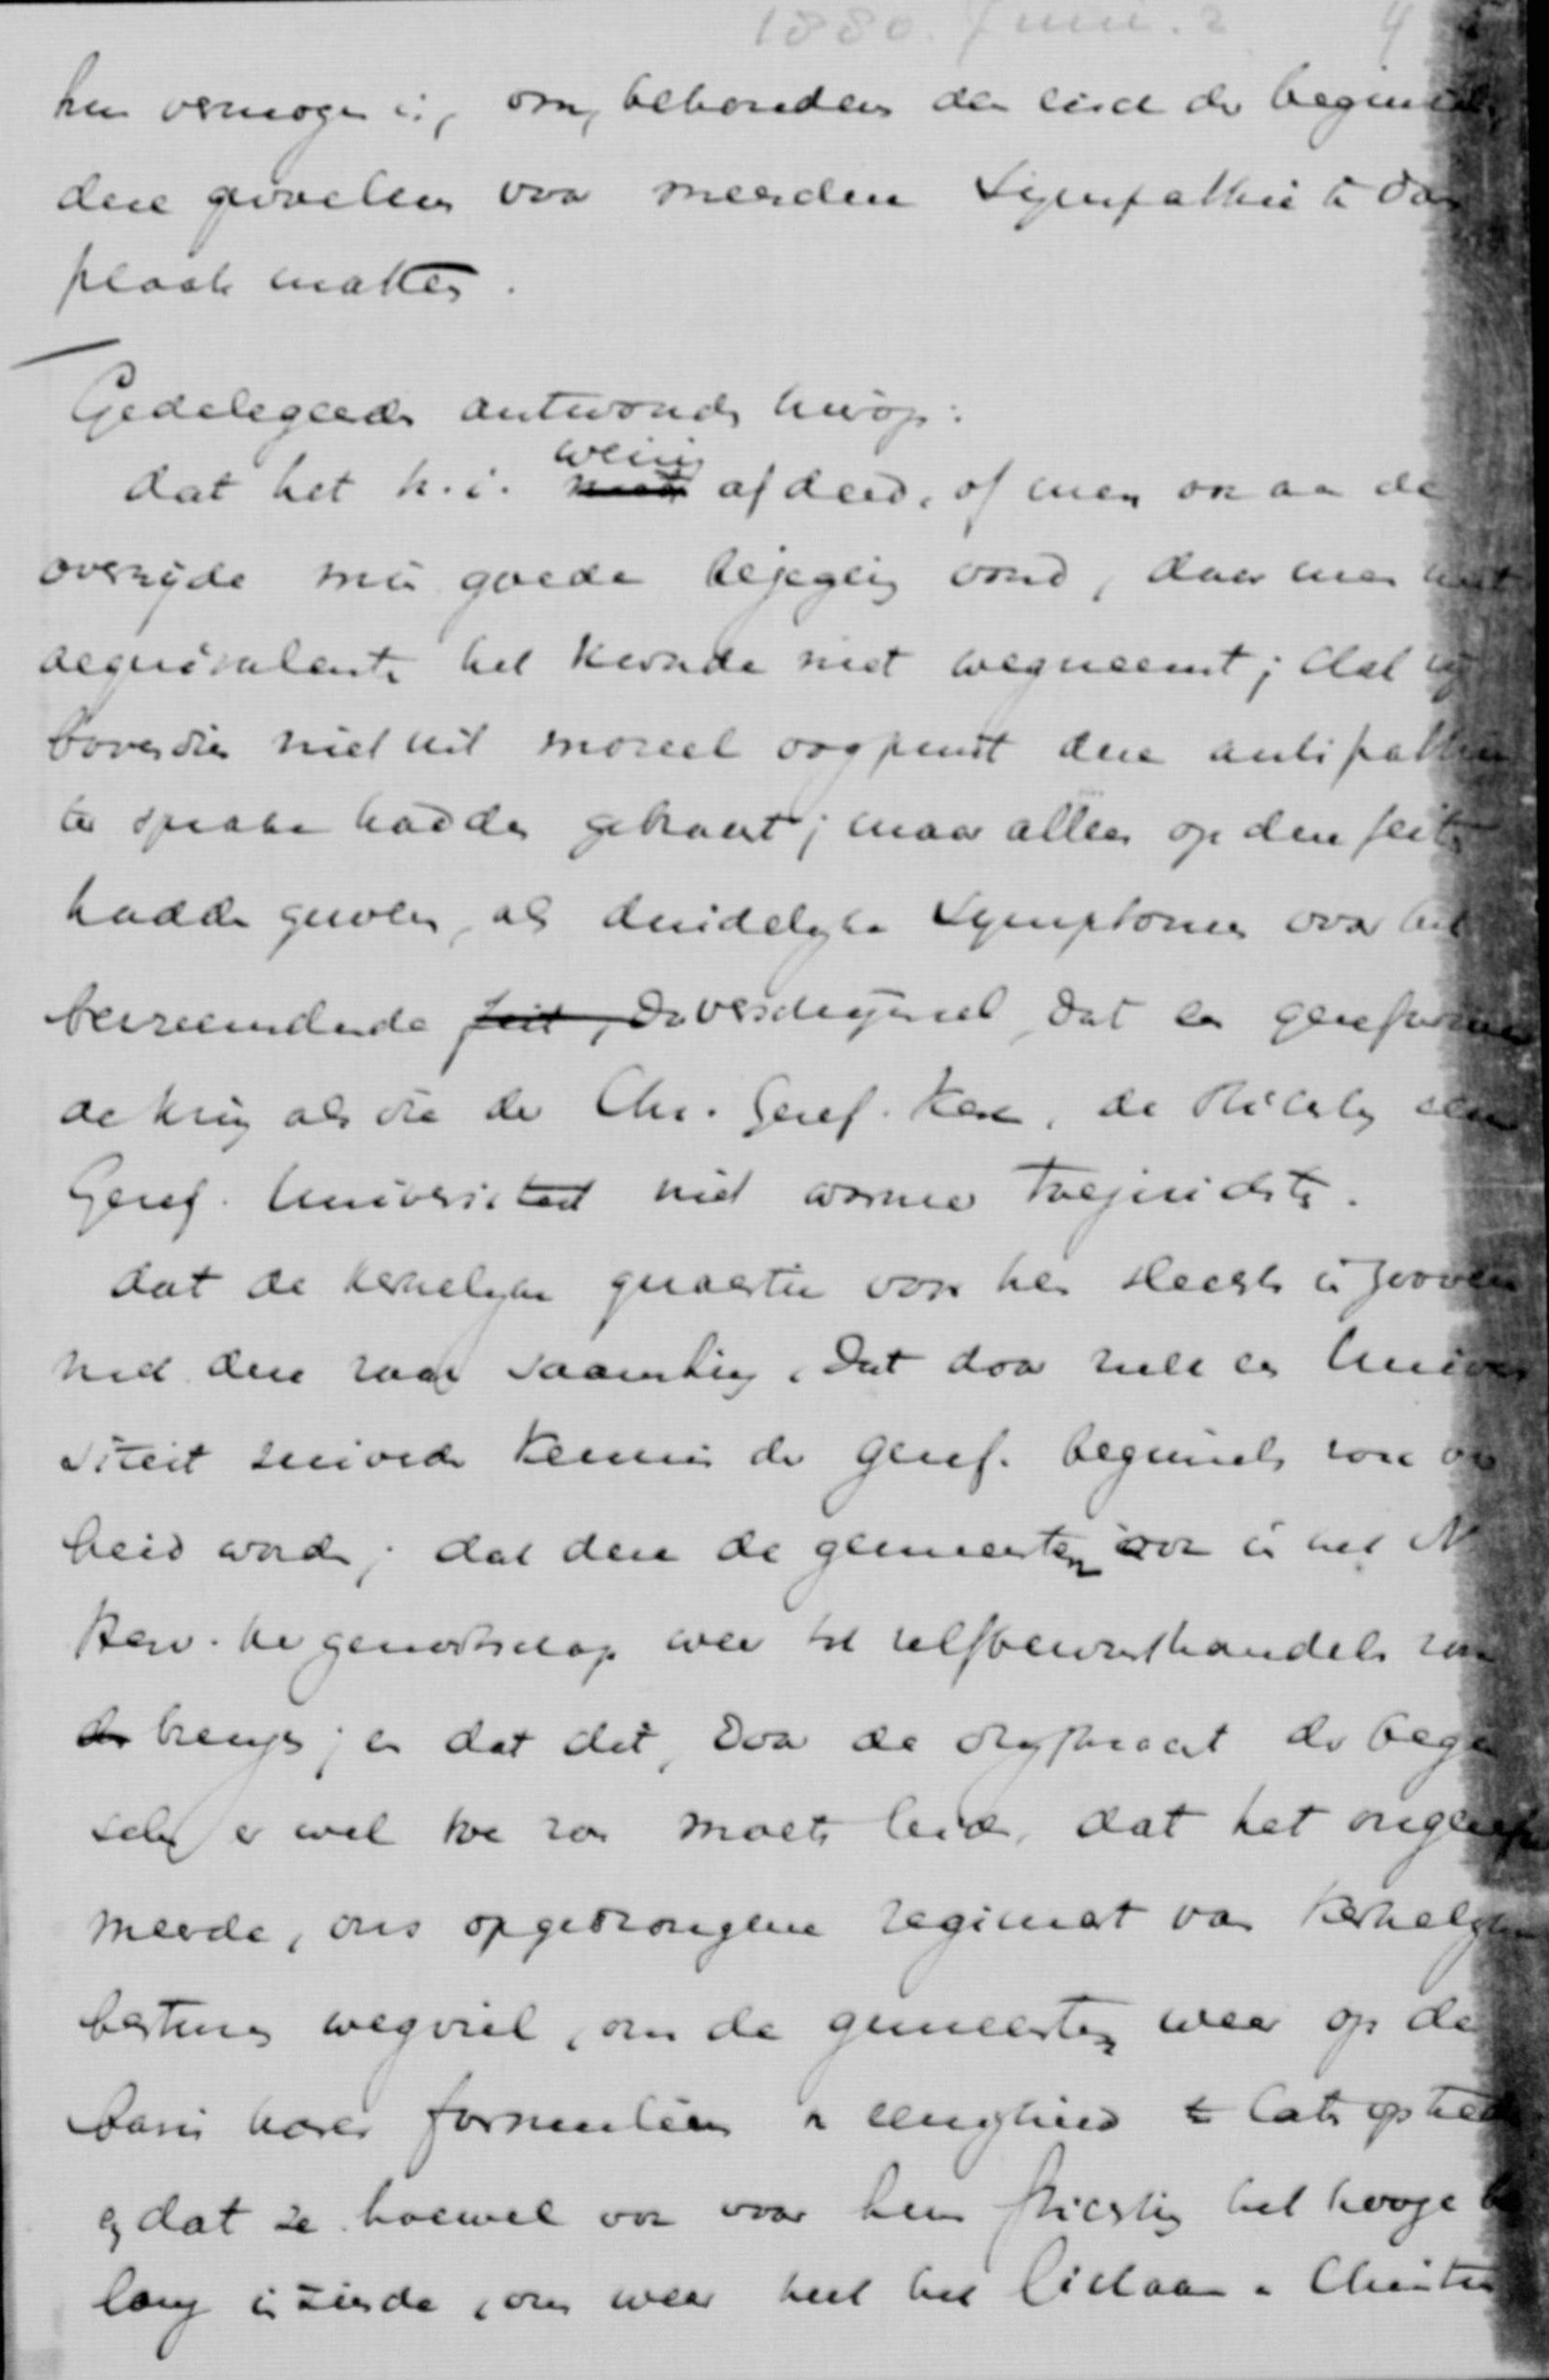 1880. Juni. 2 4
hun vermogen is, om, behoudens den eisch der beginselen
deze gevoelens voor meerdere Sympathie te doen
plaats maken.
Gedelegeerden antwoorden hierop:
dat het h.i. weinig af deed, of men ook aan de
overzijde min goede bejegening vond, daar men met
aequivalenten het kwade niet wegneemt; dat wij
bovendien niet uit moreel oogpunt deze antipathie
ter sprake hadden gebracht; maar alleen op deze feiten
hadden gewezen, als duidelijke Symptomen van het
bevreemdende feit, verschijnsel, dat een gereformeer
de kring als die der Chr. Geref. Kerk, de stichting eener
Geref. Universiteit niet warmer toejuichte.
dat de kerkelijke quaestie voor hen slechts in zooverre
met deze zaak saamhing, dat door zulk een Univer
siteit zuivere kennis der geref. beginselen zou ver
breid worden; dat deze de gemeenten ook in het N.
Herv. kergenootschap weer tot zelfbewust handelen zou
brengen; en dat dit, door de drijfkracht der begin
selen er wel toe zou moeten leiden, dat het ongerefor
meerde, ons opgedrongene regiment van kerkelijke
besturen wegviel, om de gemeenten weer op de
basis harer formulieren van eenigheid te laten optreden
en dat ze hoewel ook voor hun stichting het hooge be
lang inziende, om weer heel het lichaam van Christus